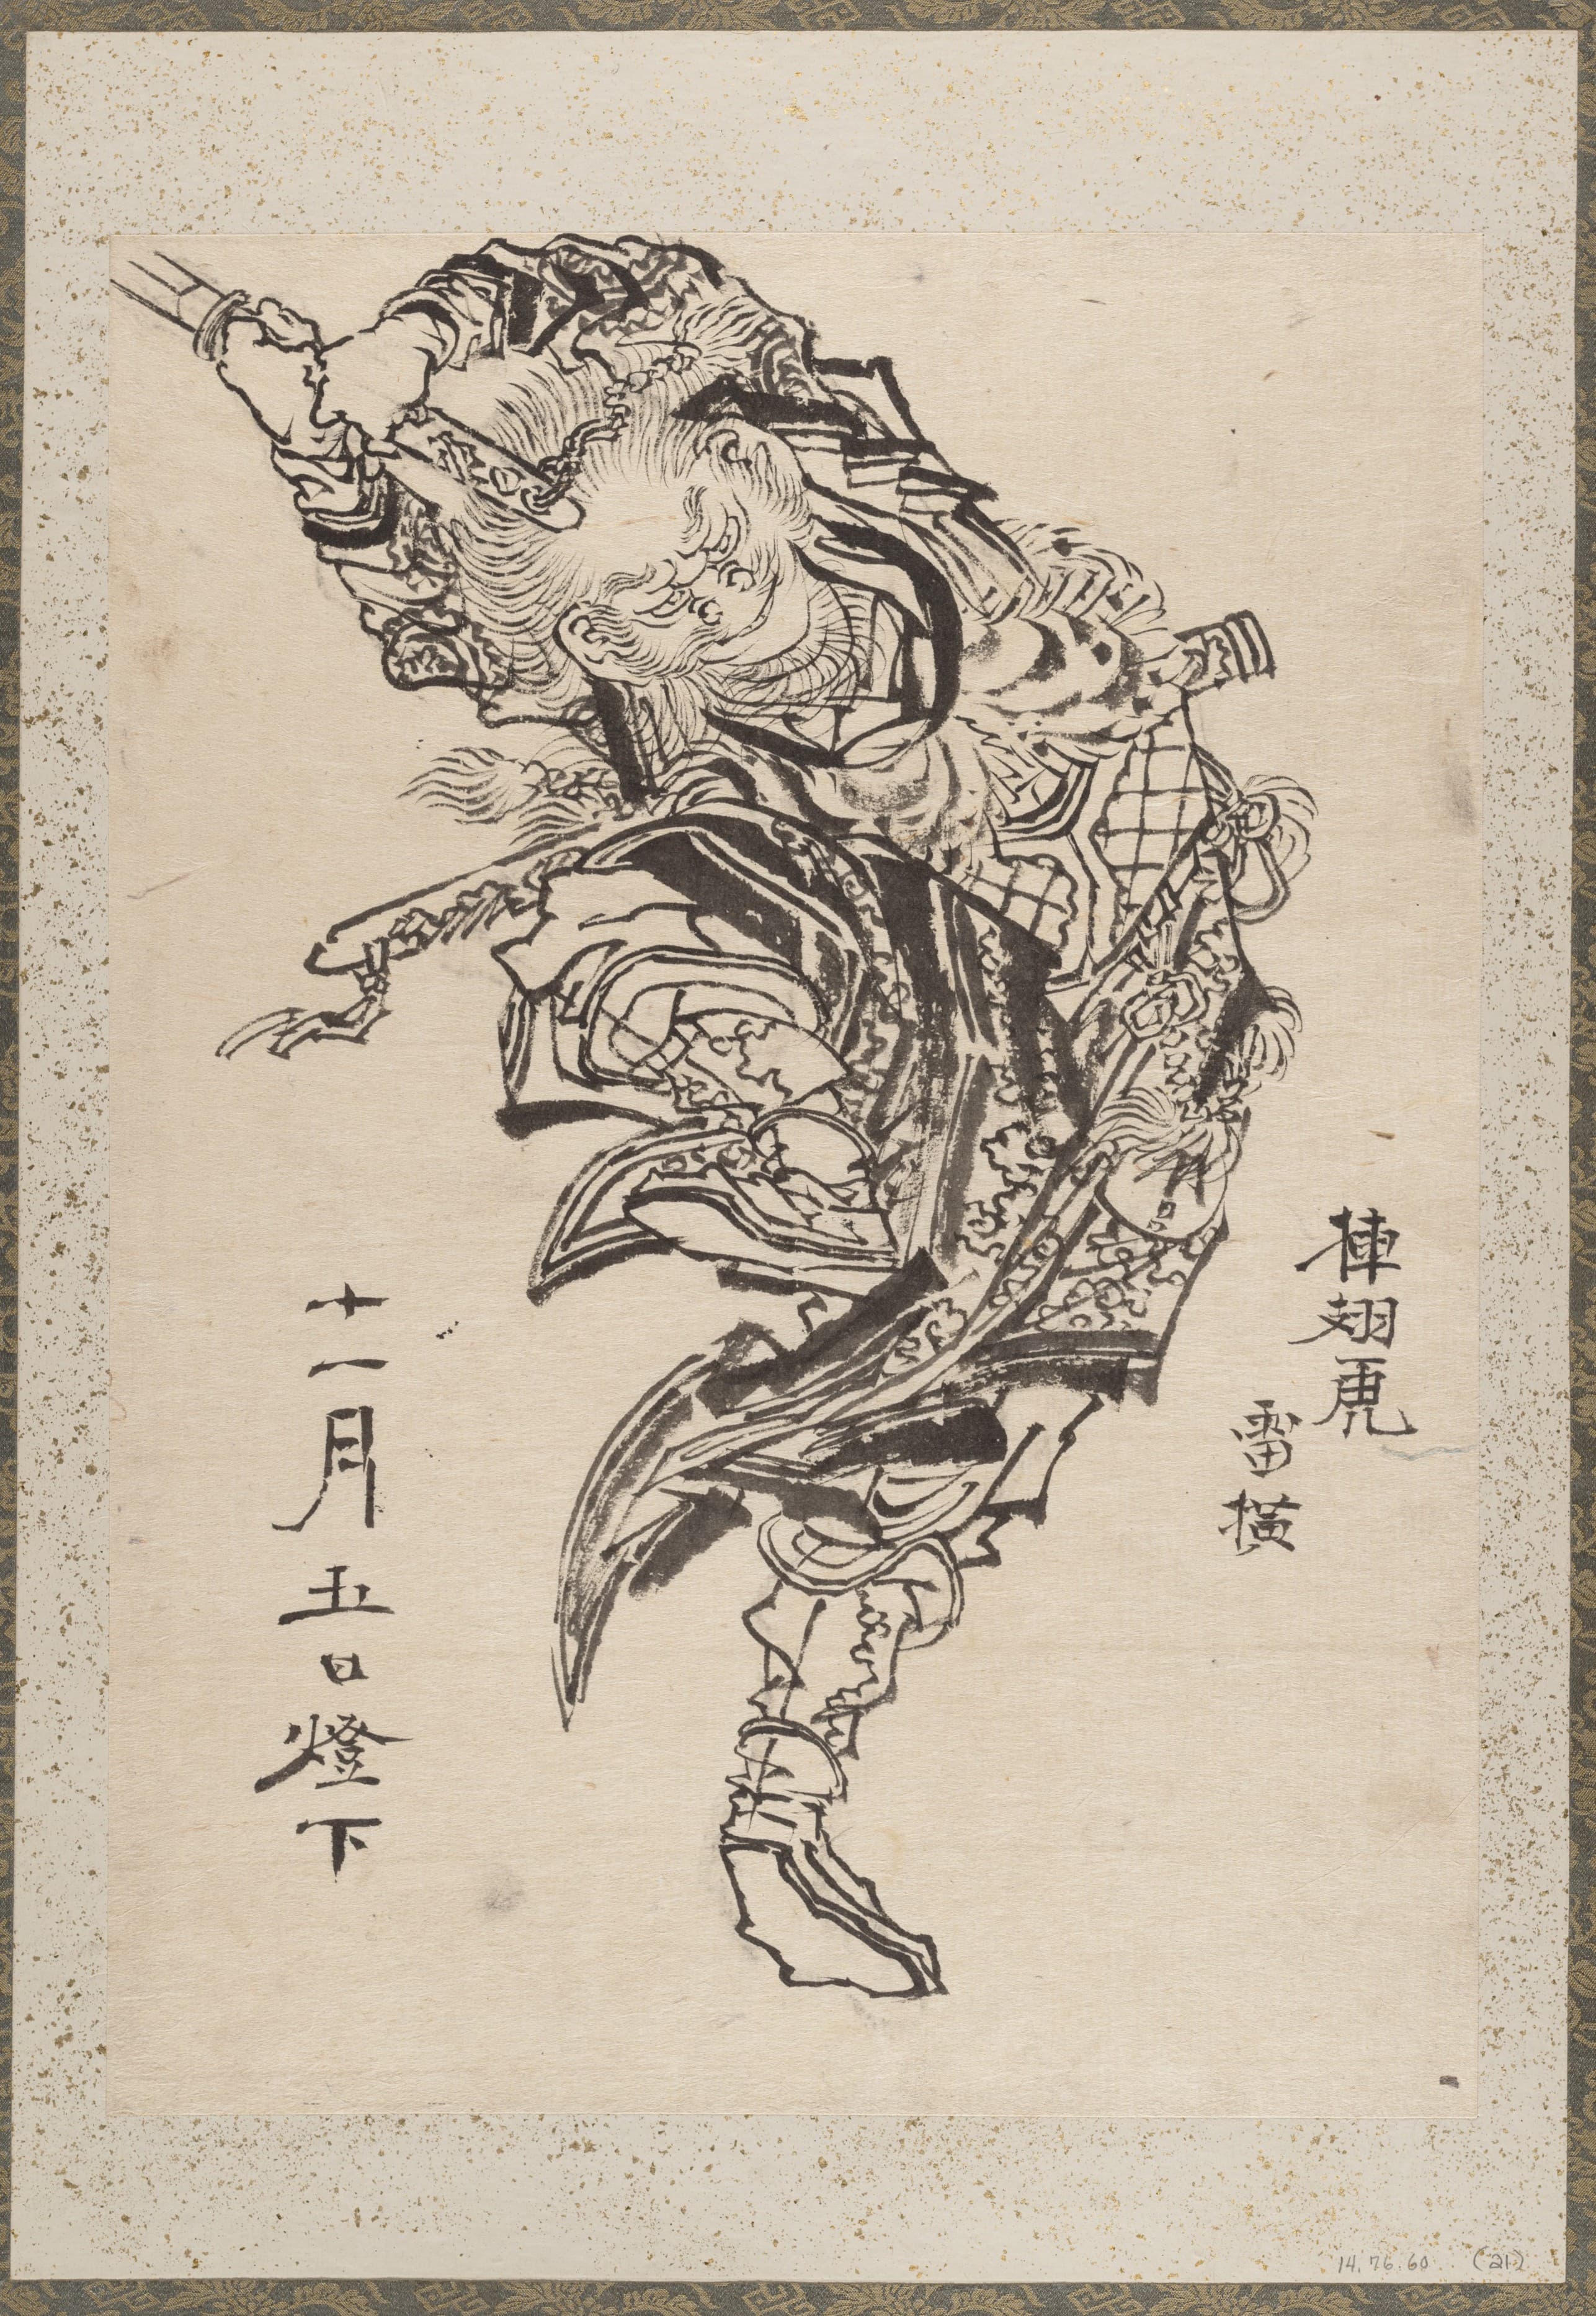 挿翅虎
雷横
十一月五日燈下
14.76.60 (21)